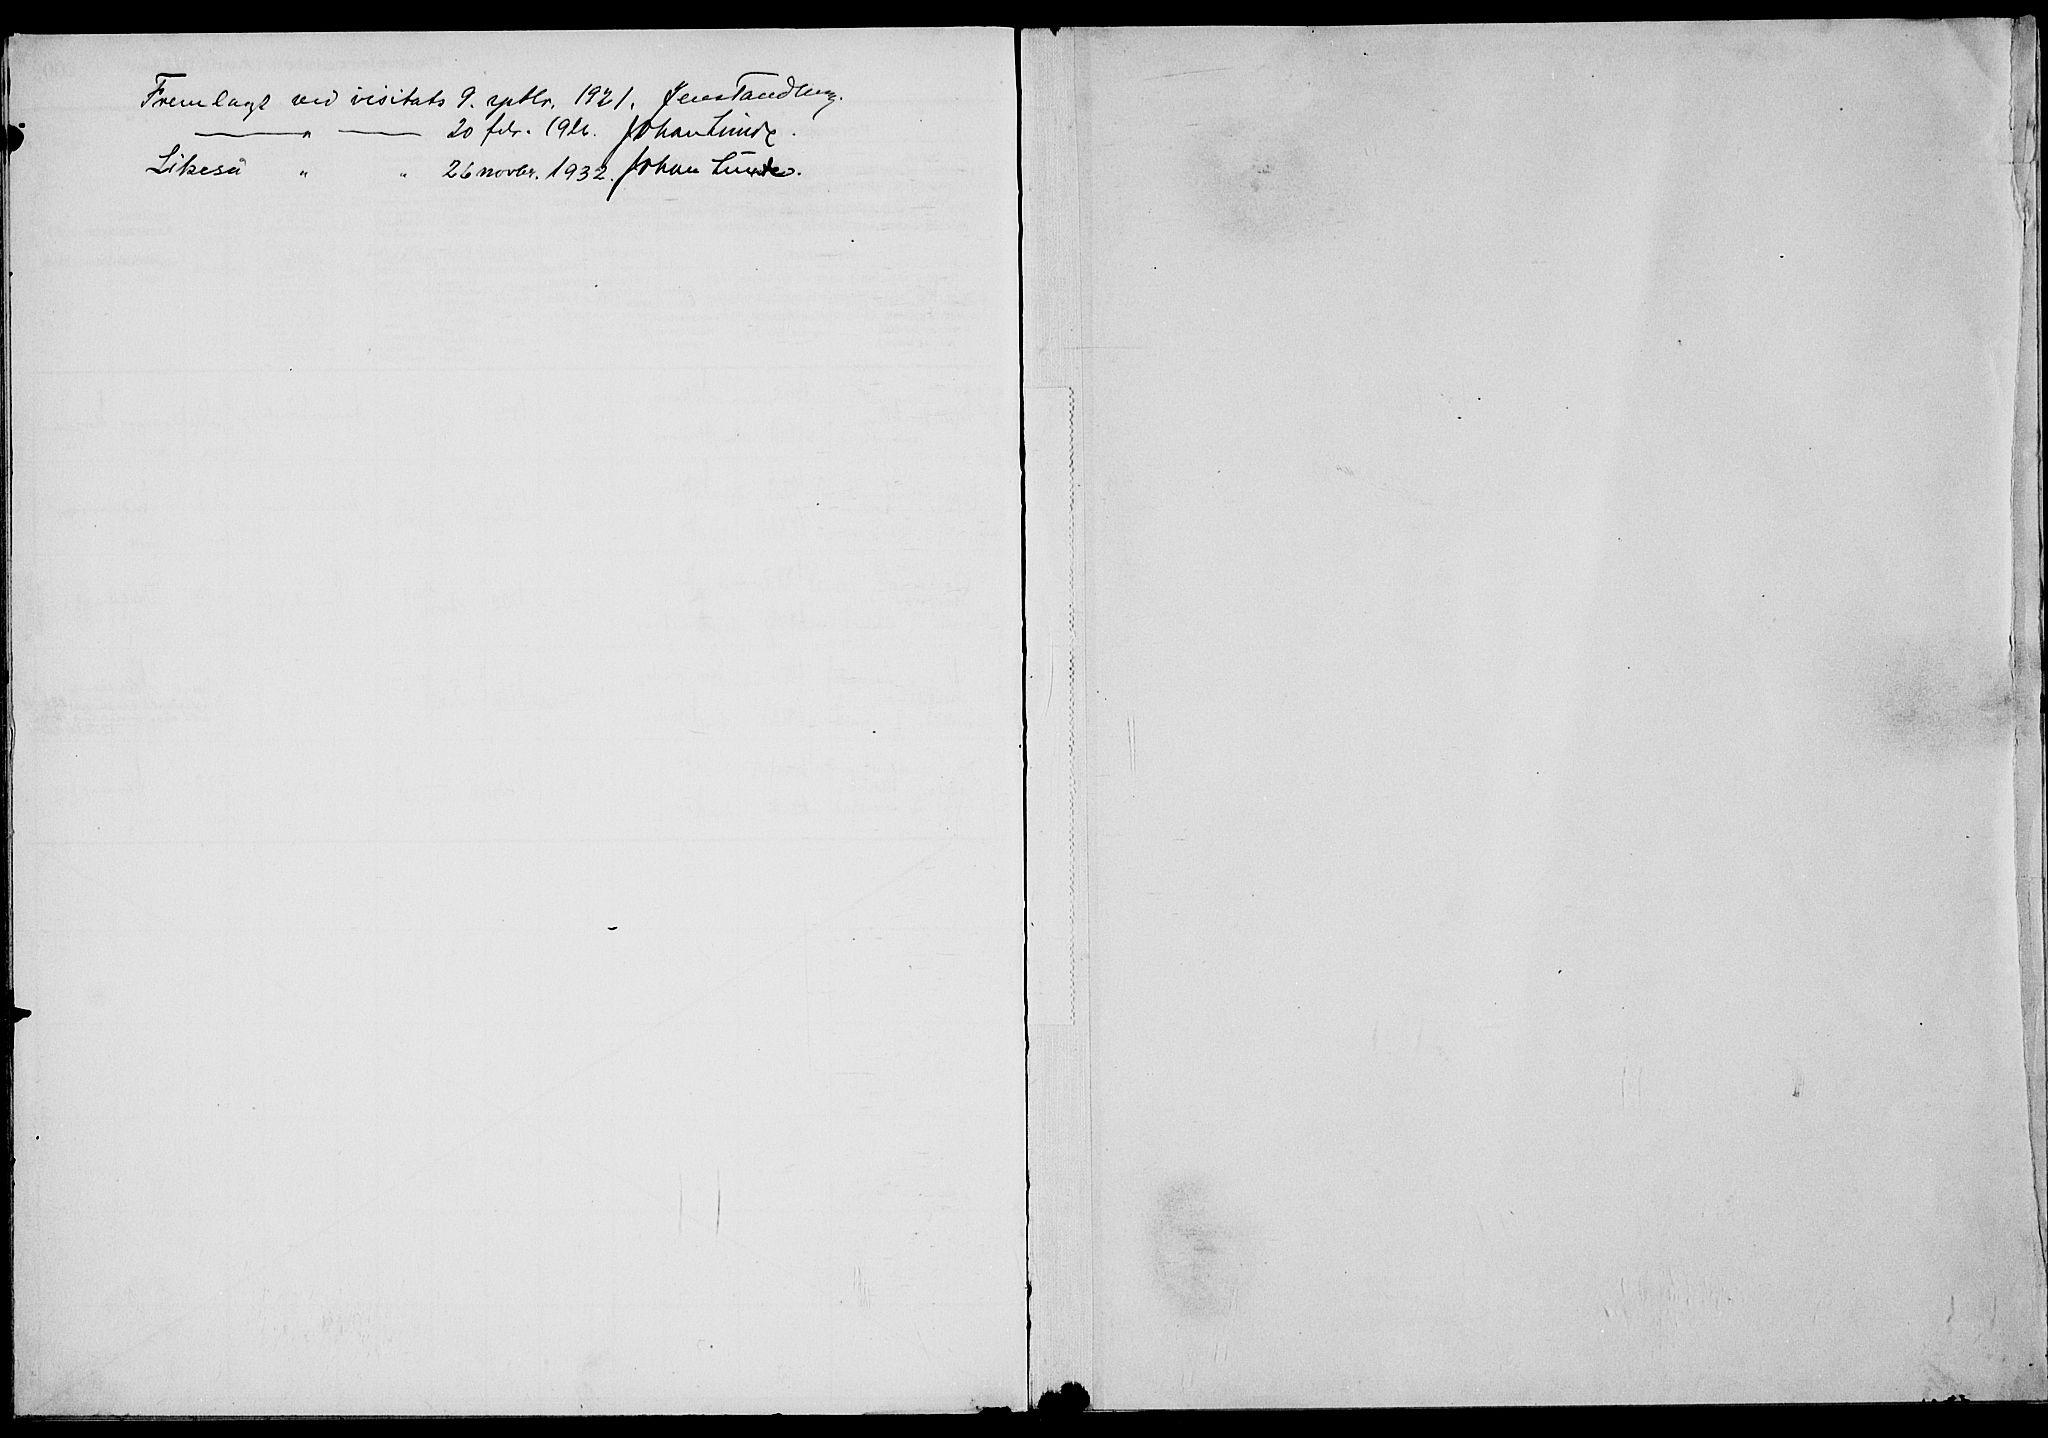 Fremlagt ved visitats 9. septbr. 1921. Jens Tandberg.
—— " —— 20 febr. 192 Johan Lunde.
Likeså " " 26 novbr. 1932. Johan Lunde.